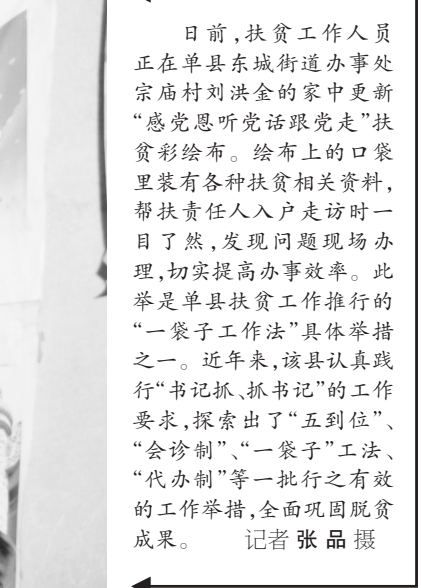 日前,扶贫工作人员
正在单县东城街道办事处
宗庙村刘洪金的家中更新
“感党恩听党话跟党走”扶
贫彩绘布。绘布上的口袋
里装有各种扶贫相关资料,
帮扶责任人入户走访时一
目了然,发现问题现场办
理,切实提高办事效率。此
举是单县扶贫工作推行的
“一袋子工作法”具体举措
之一。近年来,该县认真践
行“书记抓、抓书记”的工作
要求,探索出了“五到位”、
“会诊制”、“一袋子”工法、
“代办制”等一批行之有效
的工作举措,全面巩固脱贫
成果。 记者 张 品 摄